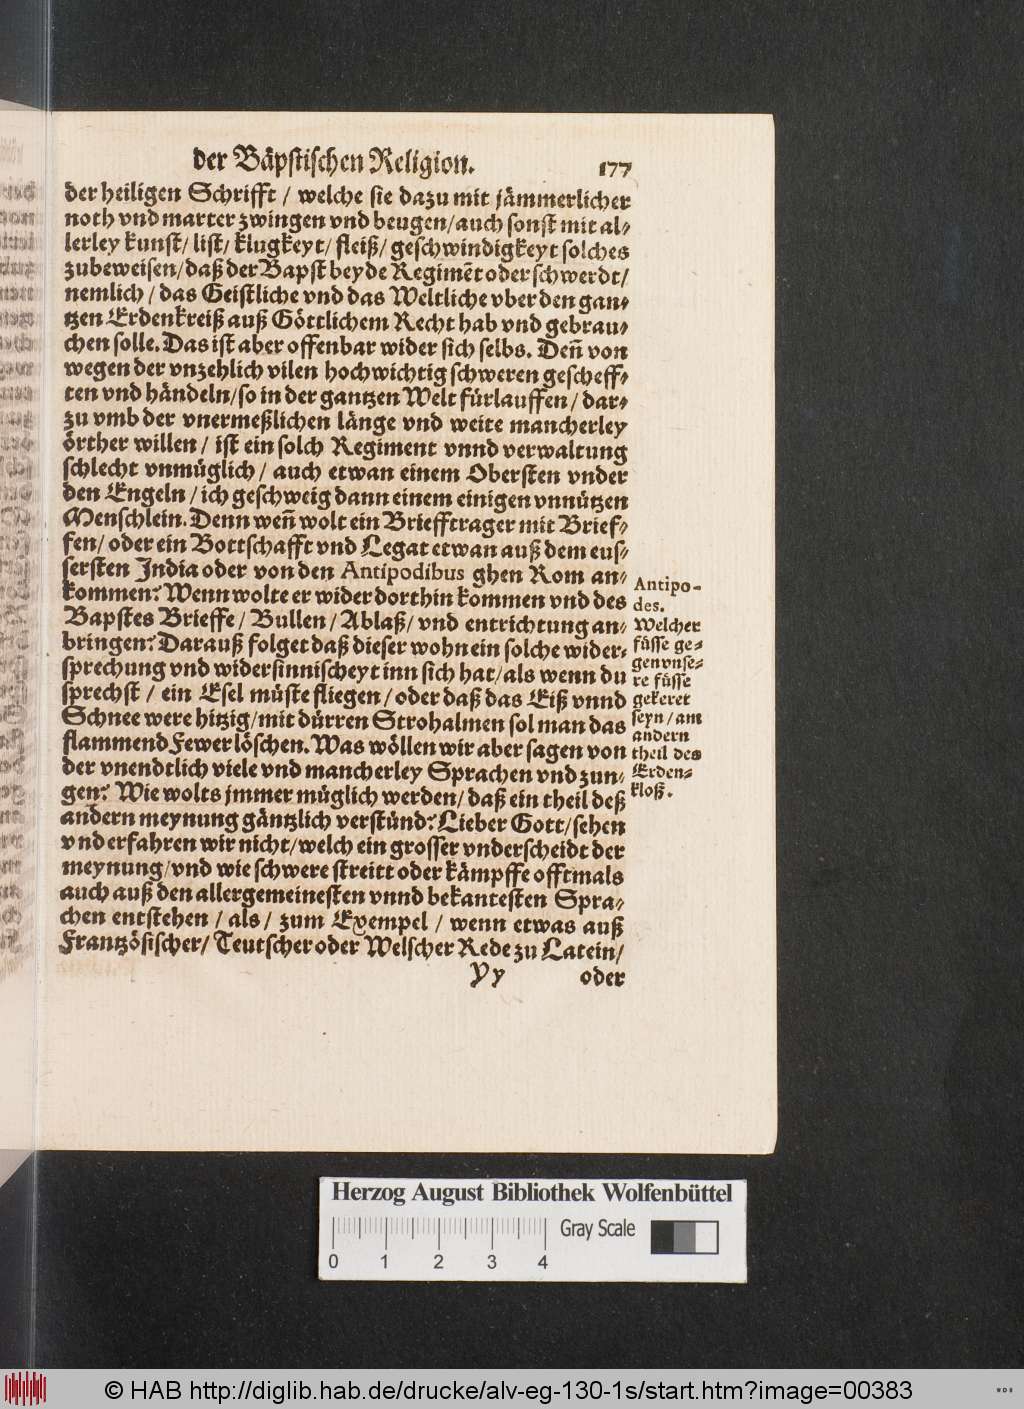 der Bäpstischen Religion. 177
der heiligen Schrifft / welche sie dazu mit jämmerlicher
noth vnd marter zwingen vnd beugen/ auch sonst mit al-
lerley kunst/ list/ klugkeyt/ fleiß/ geschwindigkeyt solches
zubeweisen/ daß der Bapst beyde Regimēt oder schwerdt/
nemlich / das Geistliche vnd das Weltliche vber den gan-
tzen Erdenkreiß auß Göttlichem Recht hab vnd gebrau-
chen solle. Das ist aber offenbar wider sich selbs. Deñ von
wegen der vnzehlich vilen hochwichtig schweren gescheff-
ten vnd händeln/ so in der gantzen Welt fürlauffen / dar-
zu vmb der vnermeßlichen länge vnd weite mancherley
örther willen / ist ein solch Regiment vnnd verwaltung
schlecht vnmüglich / auch etwan einem Obersten vnder
den Engeln / ich geschweig dann einem einigen vnnützen
Menschlein. Denn weñ wolt ein Brieffträger mit Brief-
fen/ oder ein Bottschafft vnd Legat etwan auß dem eus-
sersten India oder von den Antipodibus ghen Rom an-
kommen? Wenn wolte er wider dorthin kommen vnd des
Bapstes Brieffe / Bullen / Ablaß/ vnd entrichtung an-
bringen? Darauß folget daß dieser wohn ein solche wider-
sprechung vnd widersinnischeyt inn sich hat/ als wenn du
sprechst / ein Esel müste fliegen / oder daß das Eiß vnnd
Schnee were hitzig/ mit dürren Strohalmen sol man das
flammend Fewer löschen. Was wöllen wir aber sagen von
der vnendtlich viele vnd mancherley Sprachen vnd zun-
gen? Wie wolts jmmer müglich werden/ daß ein theil deß
andern meynung gäntzlich verstünd? Lieber Gott/ sehen
vnd erfahren wir nicht/ welch ein grosser vnderscheidt der
meynung/ vnd wie schwere streitt oder kämpffe offtmals
auch auß den allergemeinesten vnnd bekantesten Spra-
chen entstehen / als / zum Exempel / wenn etwas auß
Frantzösischer/ Teutscher oder Welscher Rede zu Latein/
Yy oder
Antipo-
des.
Welcher
füsse ge-
gen vnse-
re füsse
gekeret
seyn / am
andern
theil des
Erden-
kloß.
Herzog August Bibliothek Wolfenbüttel
Gray Scale
0 1 2 3 4
© HAB http://diglib.hab.de/drucke/alv-eg-130-1s/start.htm?image=00383